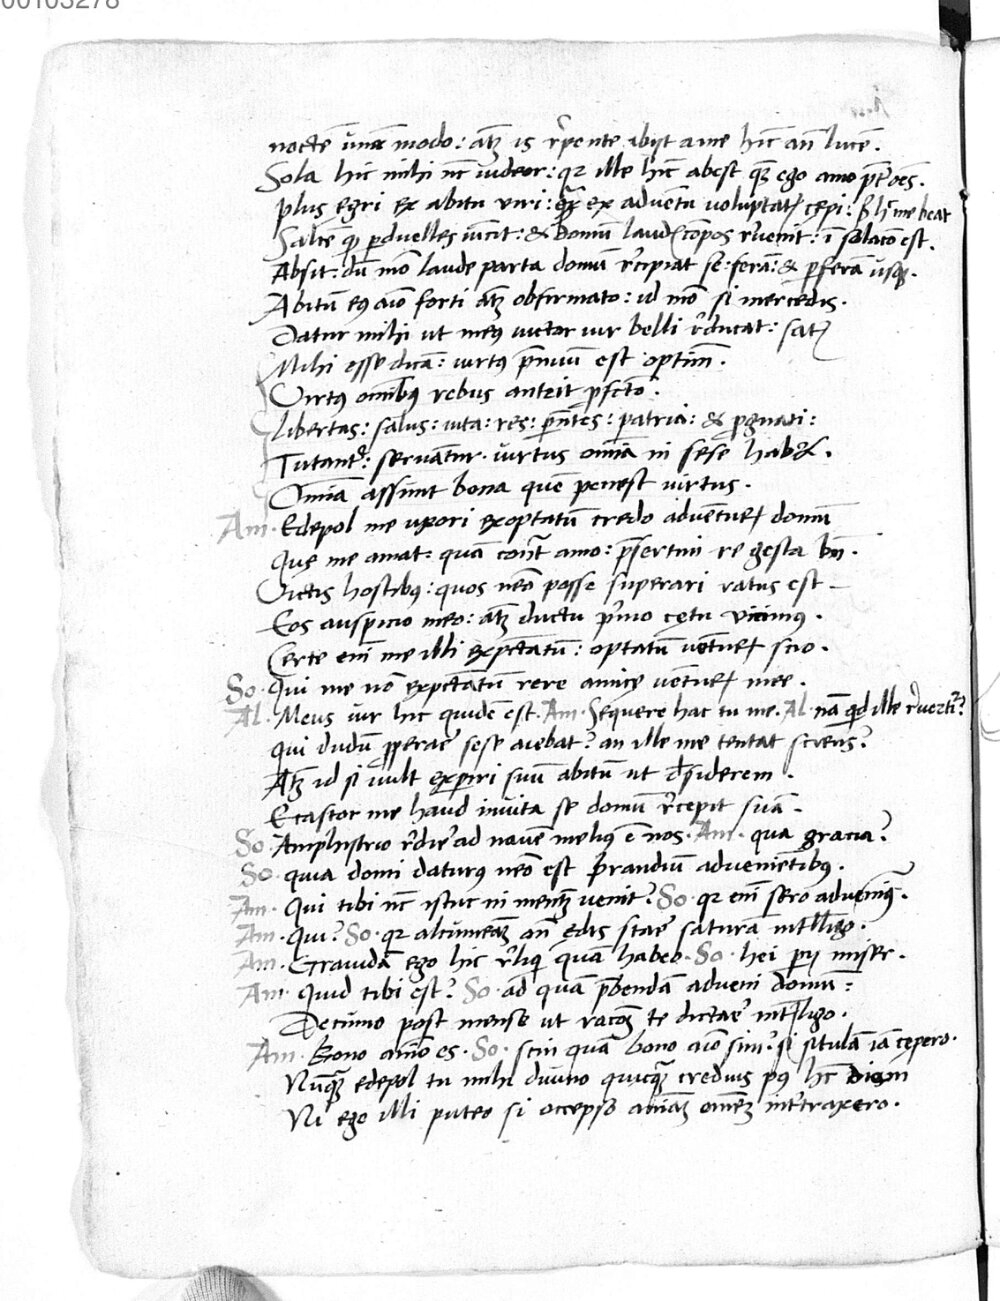 00103278
noctē unā modo: atqꝫ is r̄pente abijt a me hīc an̄ lucē.
Sola hic mihi nc̄ uideor: qꝛ ille hīc abest quē ego amo p̄t oēs.
Plus ęgri ex abitu uiri: quā ex aduentu uoluptatꝭ cępi: s̄ h̄ me beat
Saltē qꝫ ꝑduelles uicit: & domū laudꝭ compos r̄uenit: ī solatio est.
Absit: dū mō laude parta domū r̄cipiat se: ferā: & ꝑferā usqꝫ.
Abitū eꝰ aīo forti atqꝫ obfirmato: id mō si mercedis.
Datur mihi ut meꝰ uictor uir belli r̄ducat: satꝭ
Mihi esse dicā: uirtꝰ p̄miū est optimū.
Virtꝰ omībꝰ rebus anteit ꝓfecto:
Libertas: salus: uita: res: p̄ntes: patria: & ꝓgnati:
Tutantꝰ: seruantur. uirtus omīa in sese habet.
Omīa assunt bona quē penest uirtus.
Am. Edepol me uxori exoptatū credo aduenturꝫ domū
Quę me amat: quā contrā amo: p̄sertim re gesta bn̄.
Victis hostibꝰ: quos nēo posse superari ratus est
Eos auspicio meo: atqꝫ ductu p̄mo cętu uicimꝰ.
Certe enī me illi expectatū: optatū uenturꝫ scio.
So. Qui me nō expectatū rere amicę uenturꝫ mee.
Al. Meus uir hic quidē est. Am. Sequere hac tu me. Al. nā qd ille r̄uertiꝰ?
qui dudū ꝓperare sese aiebat? an ille me tentat sciens?
Atqꝫ id si uult experiri suū abitū ut d̄siderem.
Ecastor me haud inuita se domū r̄cepit suā.
So. Amphitrio r̄dire ad nauē meliꝰ ē nos. Am. qua gracia?
So. quia domi daturꝰ nēo est prandiū aduenientibꝰ.
Am. Qui tibi nc̄ istuc in mentē uenit? So. qꝛ enī sero aduenimꝰ.
Am. qui? So. qꝛ alcumenā an̄ edis stare saturā intelligo.
Am. Grauidā ego hic r̄liqui quā habeo. So. hei perij miser.
Am. Quid tibi est? So. ad quā p̄bendā adueni domū:
Decumo post mense ut racoēꝫ te dictare intelligo.
Am. Bono aīo es. So. scin quā bono aīo sim? si situlā iā cępero.
Nunqꝫ edepol tu mihi diuino quicqꝫ creduis pꝰ hc̄ diem
Ni ego illi puteo si occepso animā omnē intertraxero.